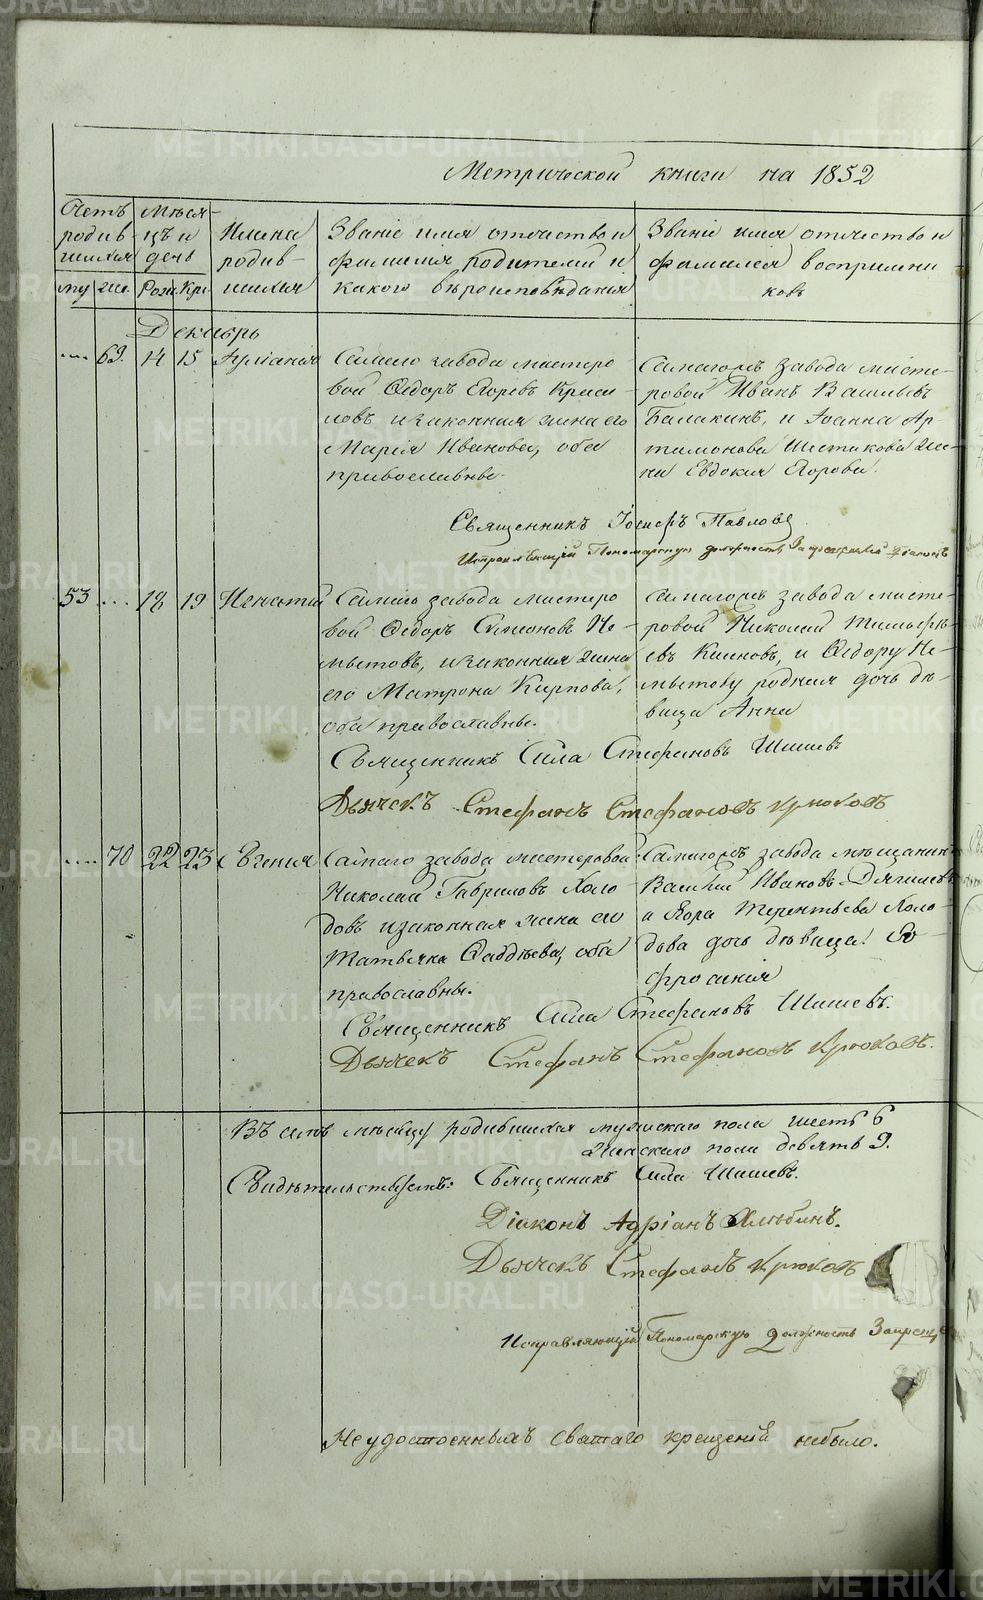 Метрической книги на 1852
Счетъ родив- шихся
му. же.
Меся- цъ и день
Рож. Кр.
Имена родив- шихся
Званіе имя отечество и фамилія родителей и какого вѣроисповѣданія
Званіе имя отечество и фамилія воспріемни ковъ
Декабрь
.... 69. 14 15
завода мастеро
вой Ѳедоръ Егоровъ Краси-
ловъ и законная жена его
Марія Иванова, оба
православные.
завода масте-
ровой Иванъ Васильевъ
Балакинъ, и Іоанна Ар-
тамонова Шестакова же-
на Евдокия Егорова.
Священникъ Іосифъ Павловъ
Исправляющій Пономарскую должность
53 .... 18 19 Игнатій
завода мастеро
вой Ѳедоръ Симеоновъ
и законная жена
его Матрона Карпова,
оба православные.
завода масте-
ровой Николай Тимофѣ-
евъ и Ѳедору
родная дочь дѣ-
вица Анна
Священникъ Сила Стефановъ Шишевъ
Дьячекъ Стефанъ Стефановъ Крюковъ
.... 70 22 23 Евгенія
Самаго завода мастеровой
Николай Гавриловъ Коло
довъ и законная жена его
Татьяна Ѳаддѣева, оба
православны.
завода мѣщанинъ
Василій Ивановъ Дягилевъ
а Егора Терентьева Коло
дова дочь дѣвица Ев-
фросинія
Священникъ Сила Стефановъ Шишевъ.
Дьячекъ Стефанъ Стефановъ Крюковъ.
Въ семъ мѣсяцѣ родившихся мужскаго пола шесть 6
Женскаго пола девять 9.
Свидѣтельствуемъ: Священникъ Сила Шишевъ.
Діаконъ Адріанъ
Дьячекъ Стефанъ Крюковъ
Исправляющій Пономарскую должность
Неудостоенныхъ святаго крещенія небыло.
METRIKI.GASO-URAL.RU